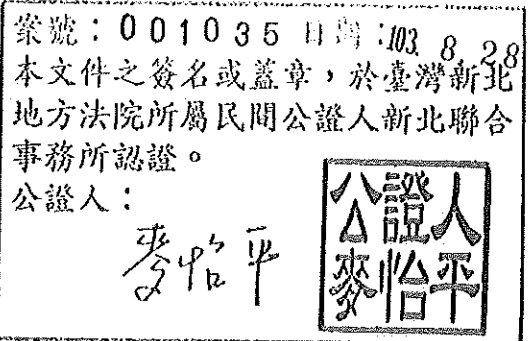 案號：001035 日期：103. 8. 28
本文件之簽名或蓋章，於臺灣新北
地方法院所屬民間公證人新北聯合
事務所認證。
公證人：
麥怡平
公證人
麥怡平